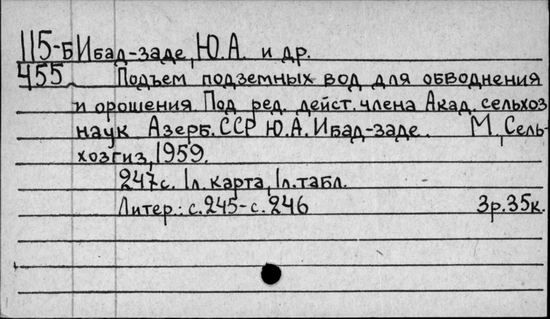 115-Б Ибад-заде, Ю.А. и др.
455 Подъем подземных вод для обводнения
и орошения. Под ред. дейст. члена Акад. сельхоз
наук Азерб. ССР Ю.А. Ибад-заде. М., Сель-
хозгиз, 1959.
247с. 1л. карта, 1л. табл.
Литер.: с.245-с.246 3р.35к.